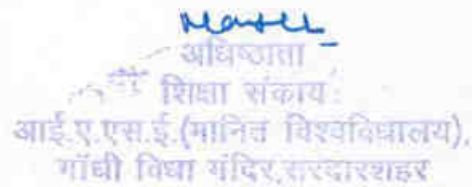 अधिष्ठाता
शिक्षा संकाय
आई.ए.एस.ई.(मानित विश्वविधालय),
गाँधी विधा मंदिर,सरदारशहर